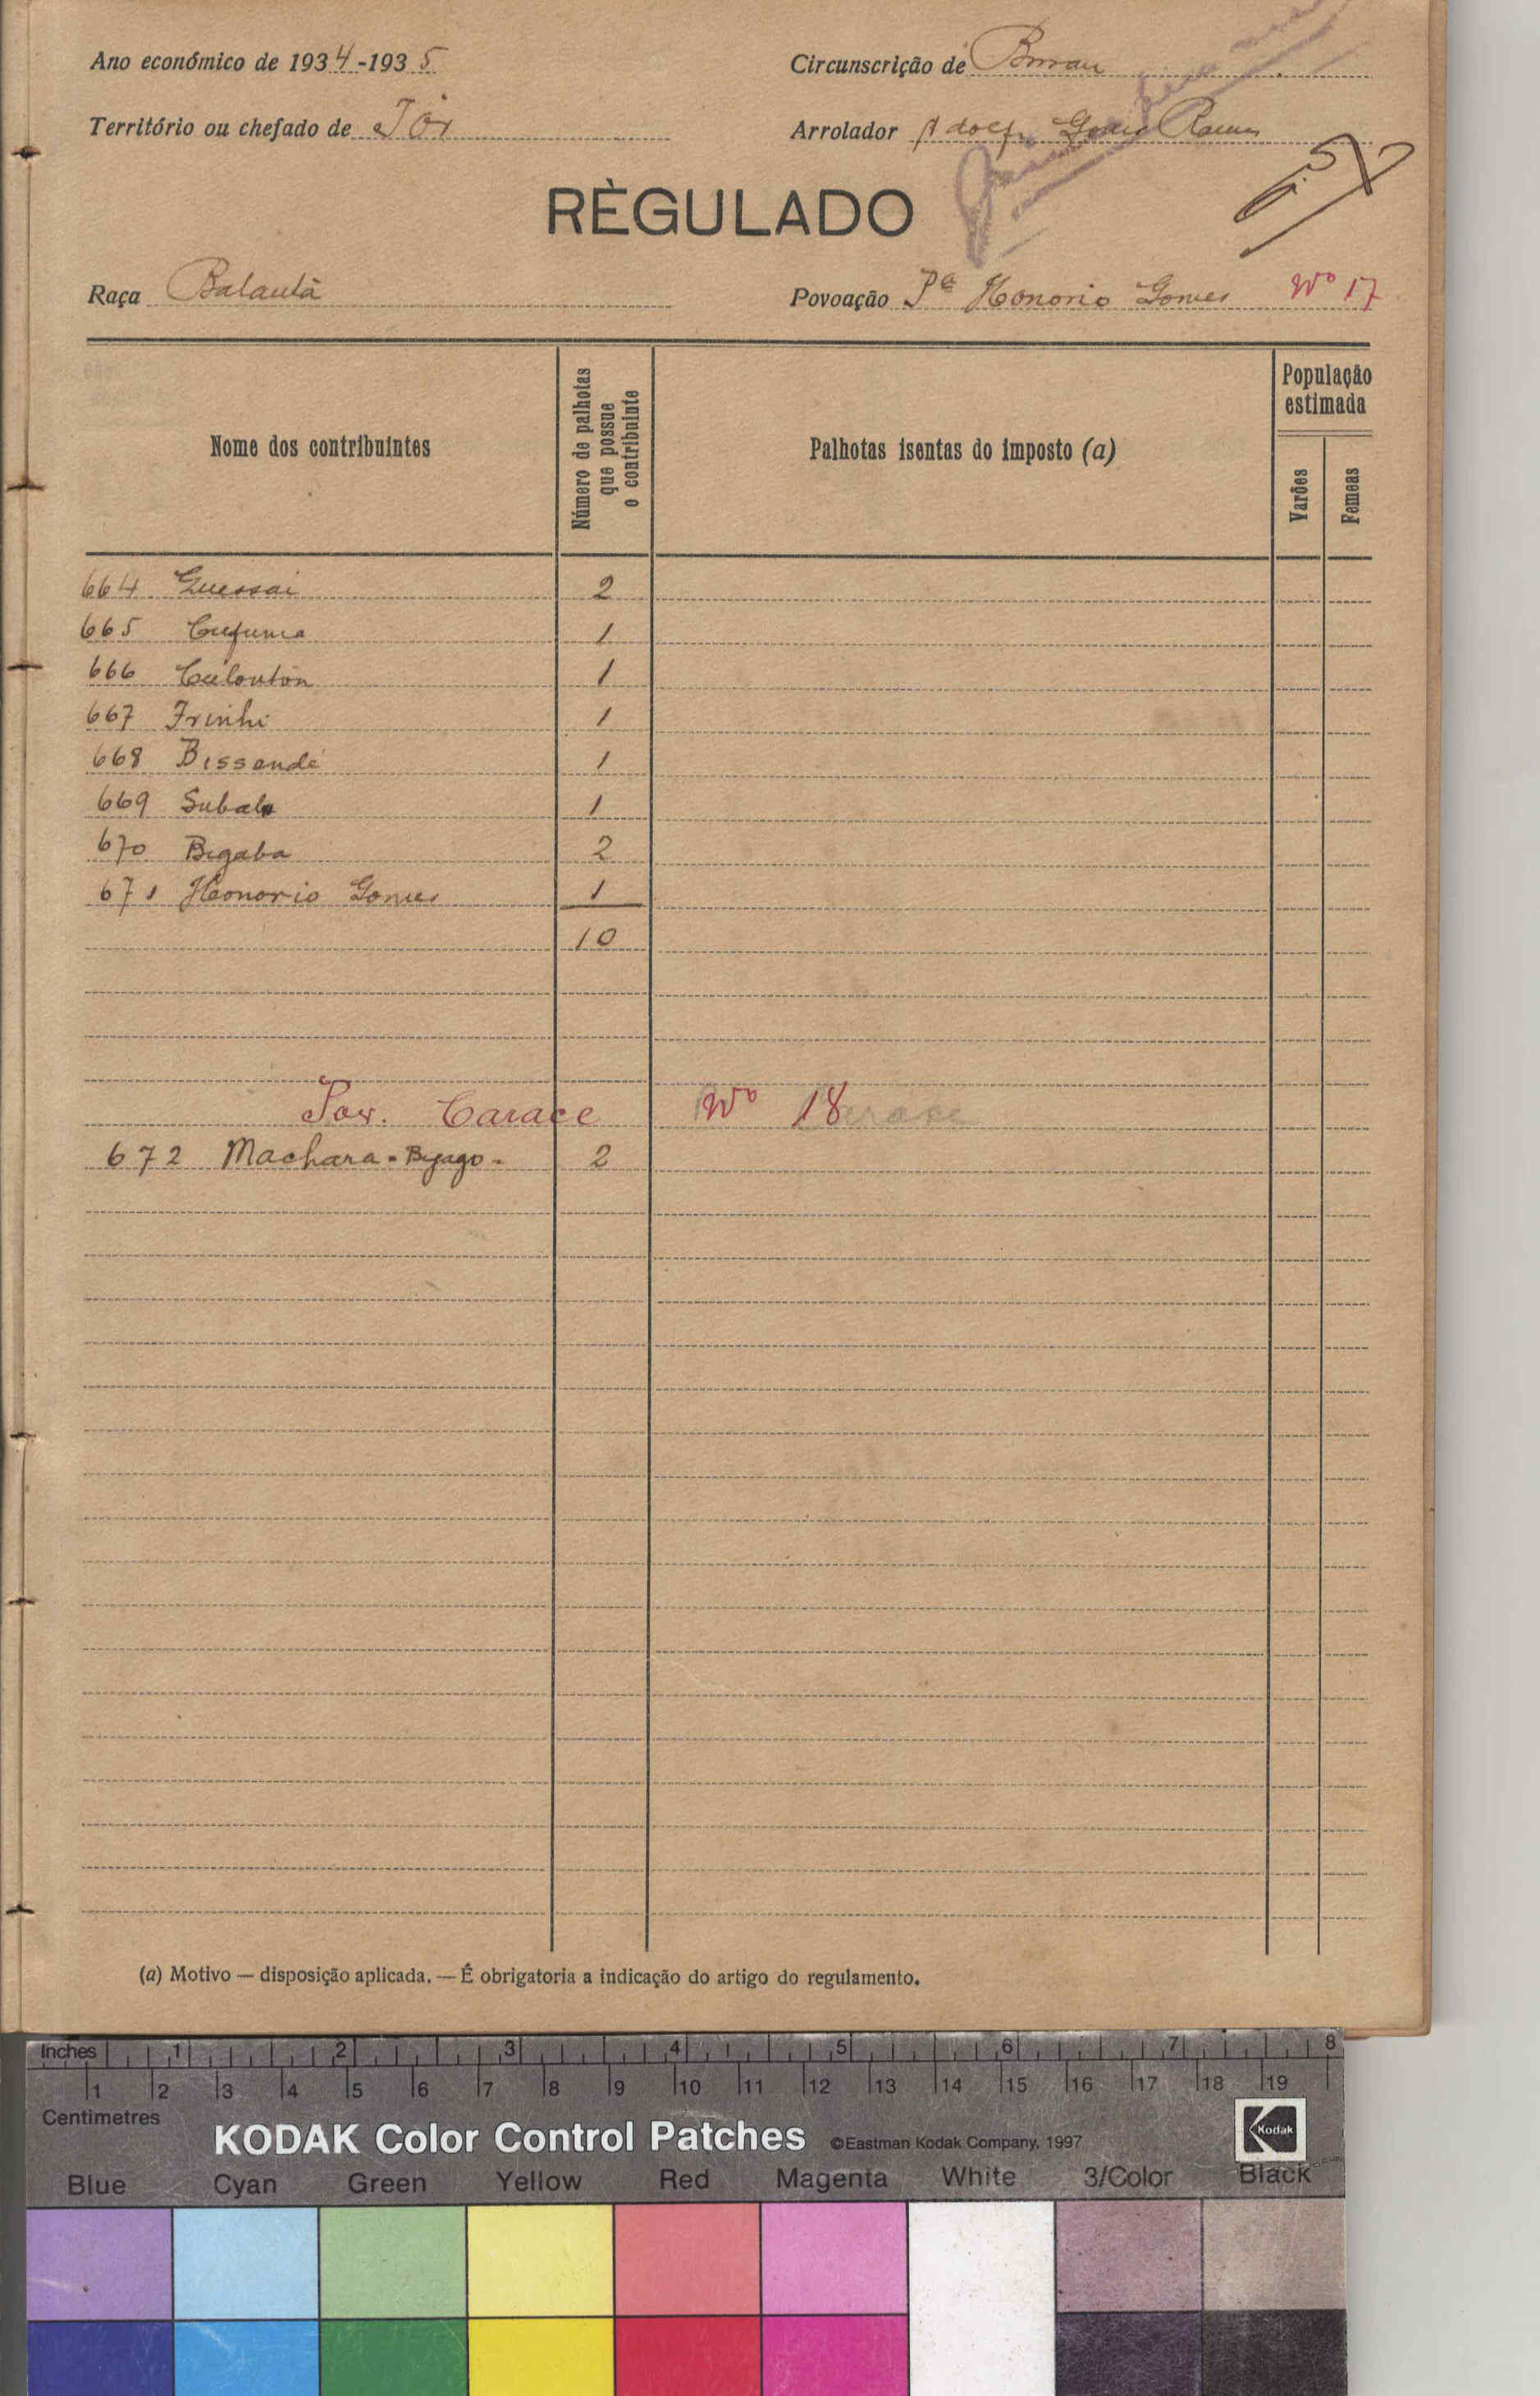 Ano económico de 1934-1935
Circunscrição de
Território ou chefado de Jór
Arrolador Adolfo Gomes Ramos
RÈGULADO
Raça Balanta
Povoação Pª Honorio Gomes Nº 17
Nome dos contribuintes
Número de palhotas que possue o contribuinte
Palhotas isentas do imposto (a)
População estimada
Varões
Femeas
664 Guessai 2
665 Cufuma 1
666 1
667 1
668 Bissandé 1
669 Subala 1
670 Bigaba 2
671 Honorio Gomes 1
10
Pov. Carace Nº 18
672 Machara - Byago - 2
(a) Motivo — disposição aplicada. — É obrigatoria a indicação do artigo do regulamento.
Inches 1 2 3 4 5 6 7 8
1 2 3 4 5 6 7 8 9 10 11 12 13 14 15 16 17 18 19
Centimetres
KODAK Color Control Patches ©Eastman Kodak Company, 1997 Kodak
Blue Cyan Green Yellow Red Magenta White 3/Color Black